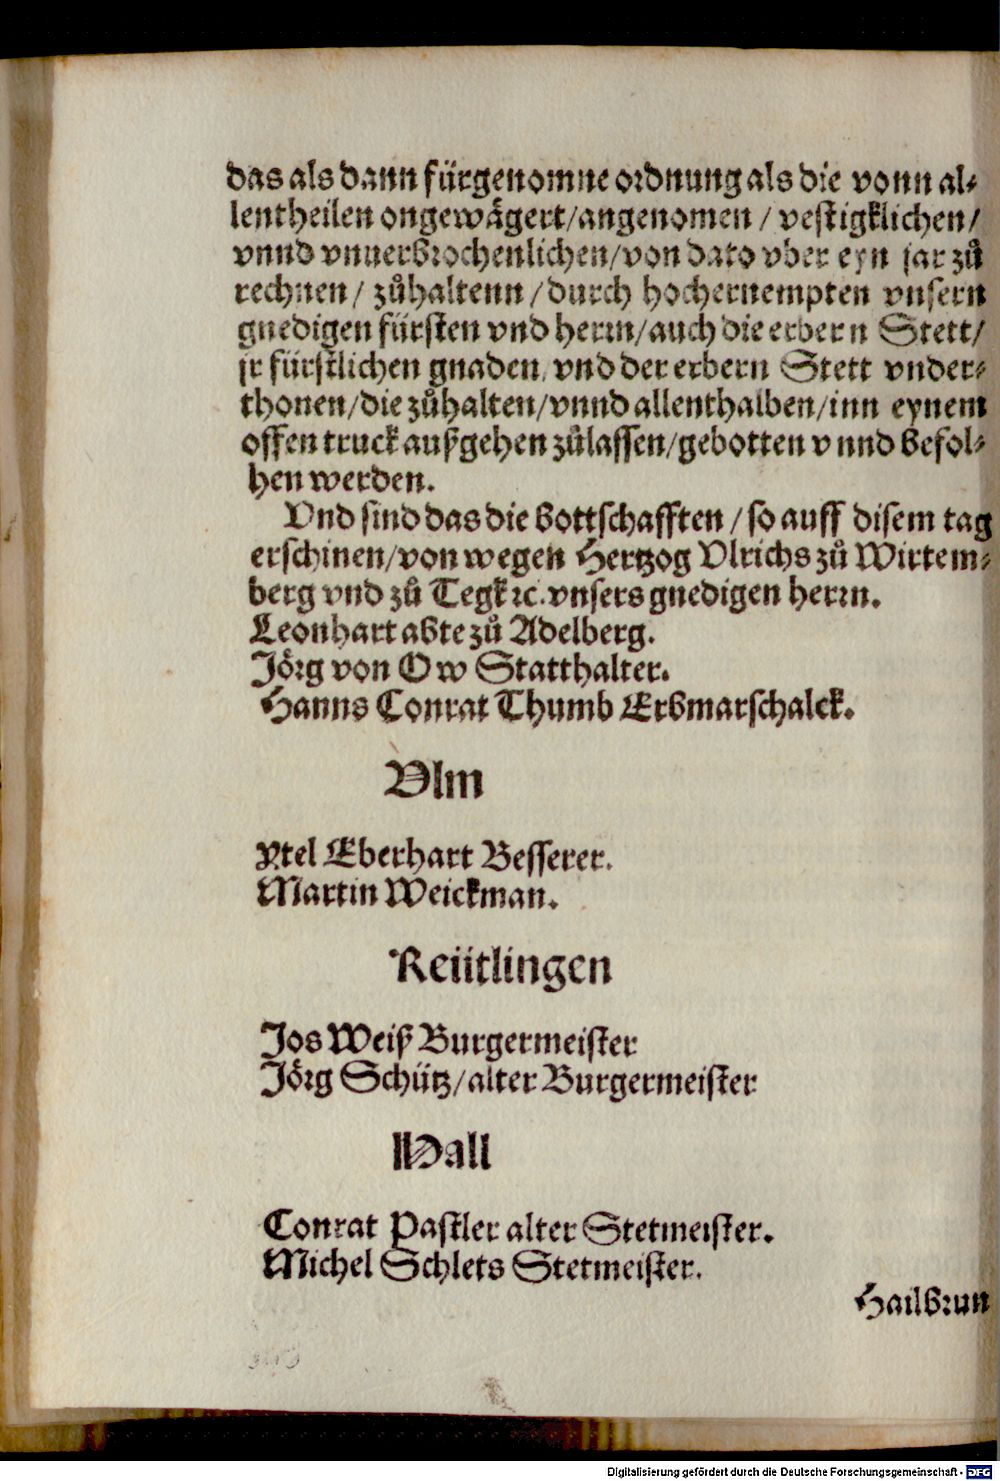 das als dann fürgenomne ordnung als die vonn al⸗
lentheilen ongewägert/angenomen / vestigklichen/
vnnd vnuerbrochenlichen/von dato vber eyn jar zů
rechnen/ zůhaltenn /durch hochernempten vnsern
gnedigen fürsten vnd herrn/auch die erbern Stett/
jr fürstlichen gnaden, vnd der erbern Stett vnder⸗
thonen/die zůhalten/vnnd allenthalben/inn eynem
offen truck außgehen zůlassen/gebotten vnnd befol⸗
hen werden.
Vnd sind das die bottschafften /so auff disem tag
erschinen/von wegen Hertzog Vlrichs zů Wirtem⸗
berg vnd zů Tegk ꝛc. vnsers gnedigen herrn.
Leonhart abte zů Adelberg.
Jörg von Ow Statthalter.
Hanns Conrat Thumb Erbmarschalck.
Vlm
Ytel Eberhart Besserer.
Martin Weickman.
Reütlingen
Jos Weiß Burgermeister
Jörg Schütz/alter Burgermeister
Hall
Conrat Pastler alter Stetmeister.
Michel Schlets Stetmeister.
Hailbrun
Digitalisierung gefördert durch die Deutsche Forschungsgemeinschaft - DFG